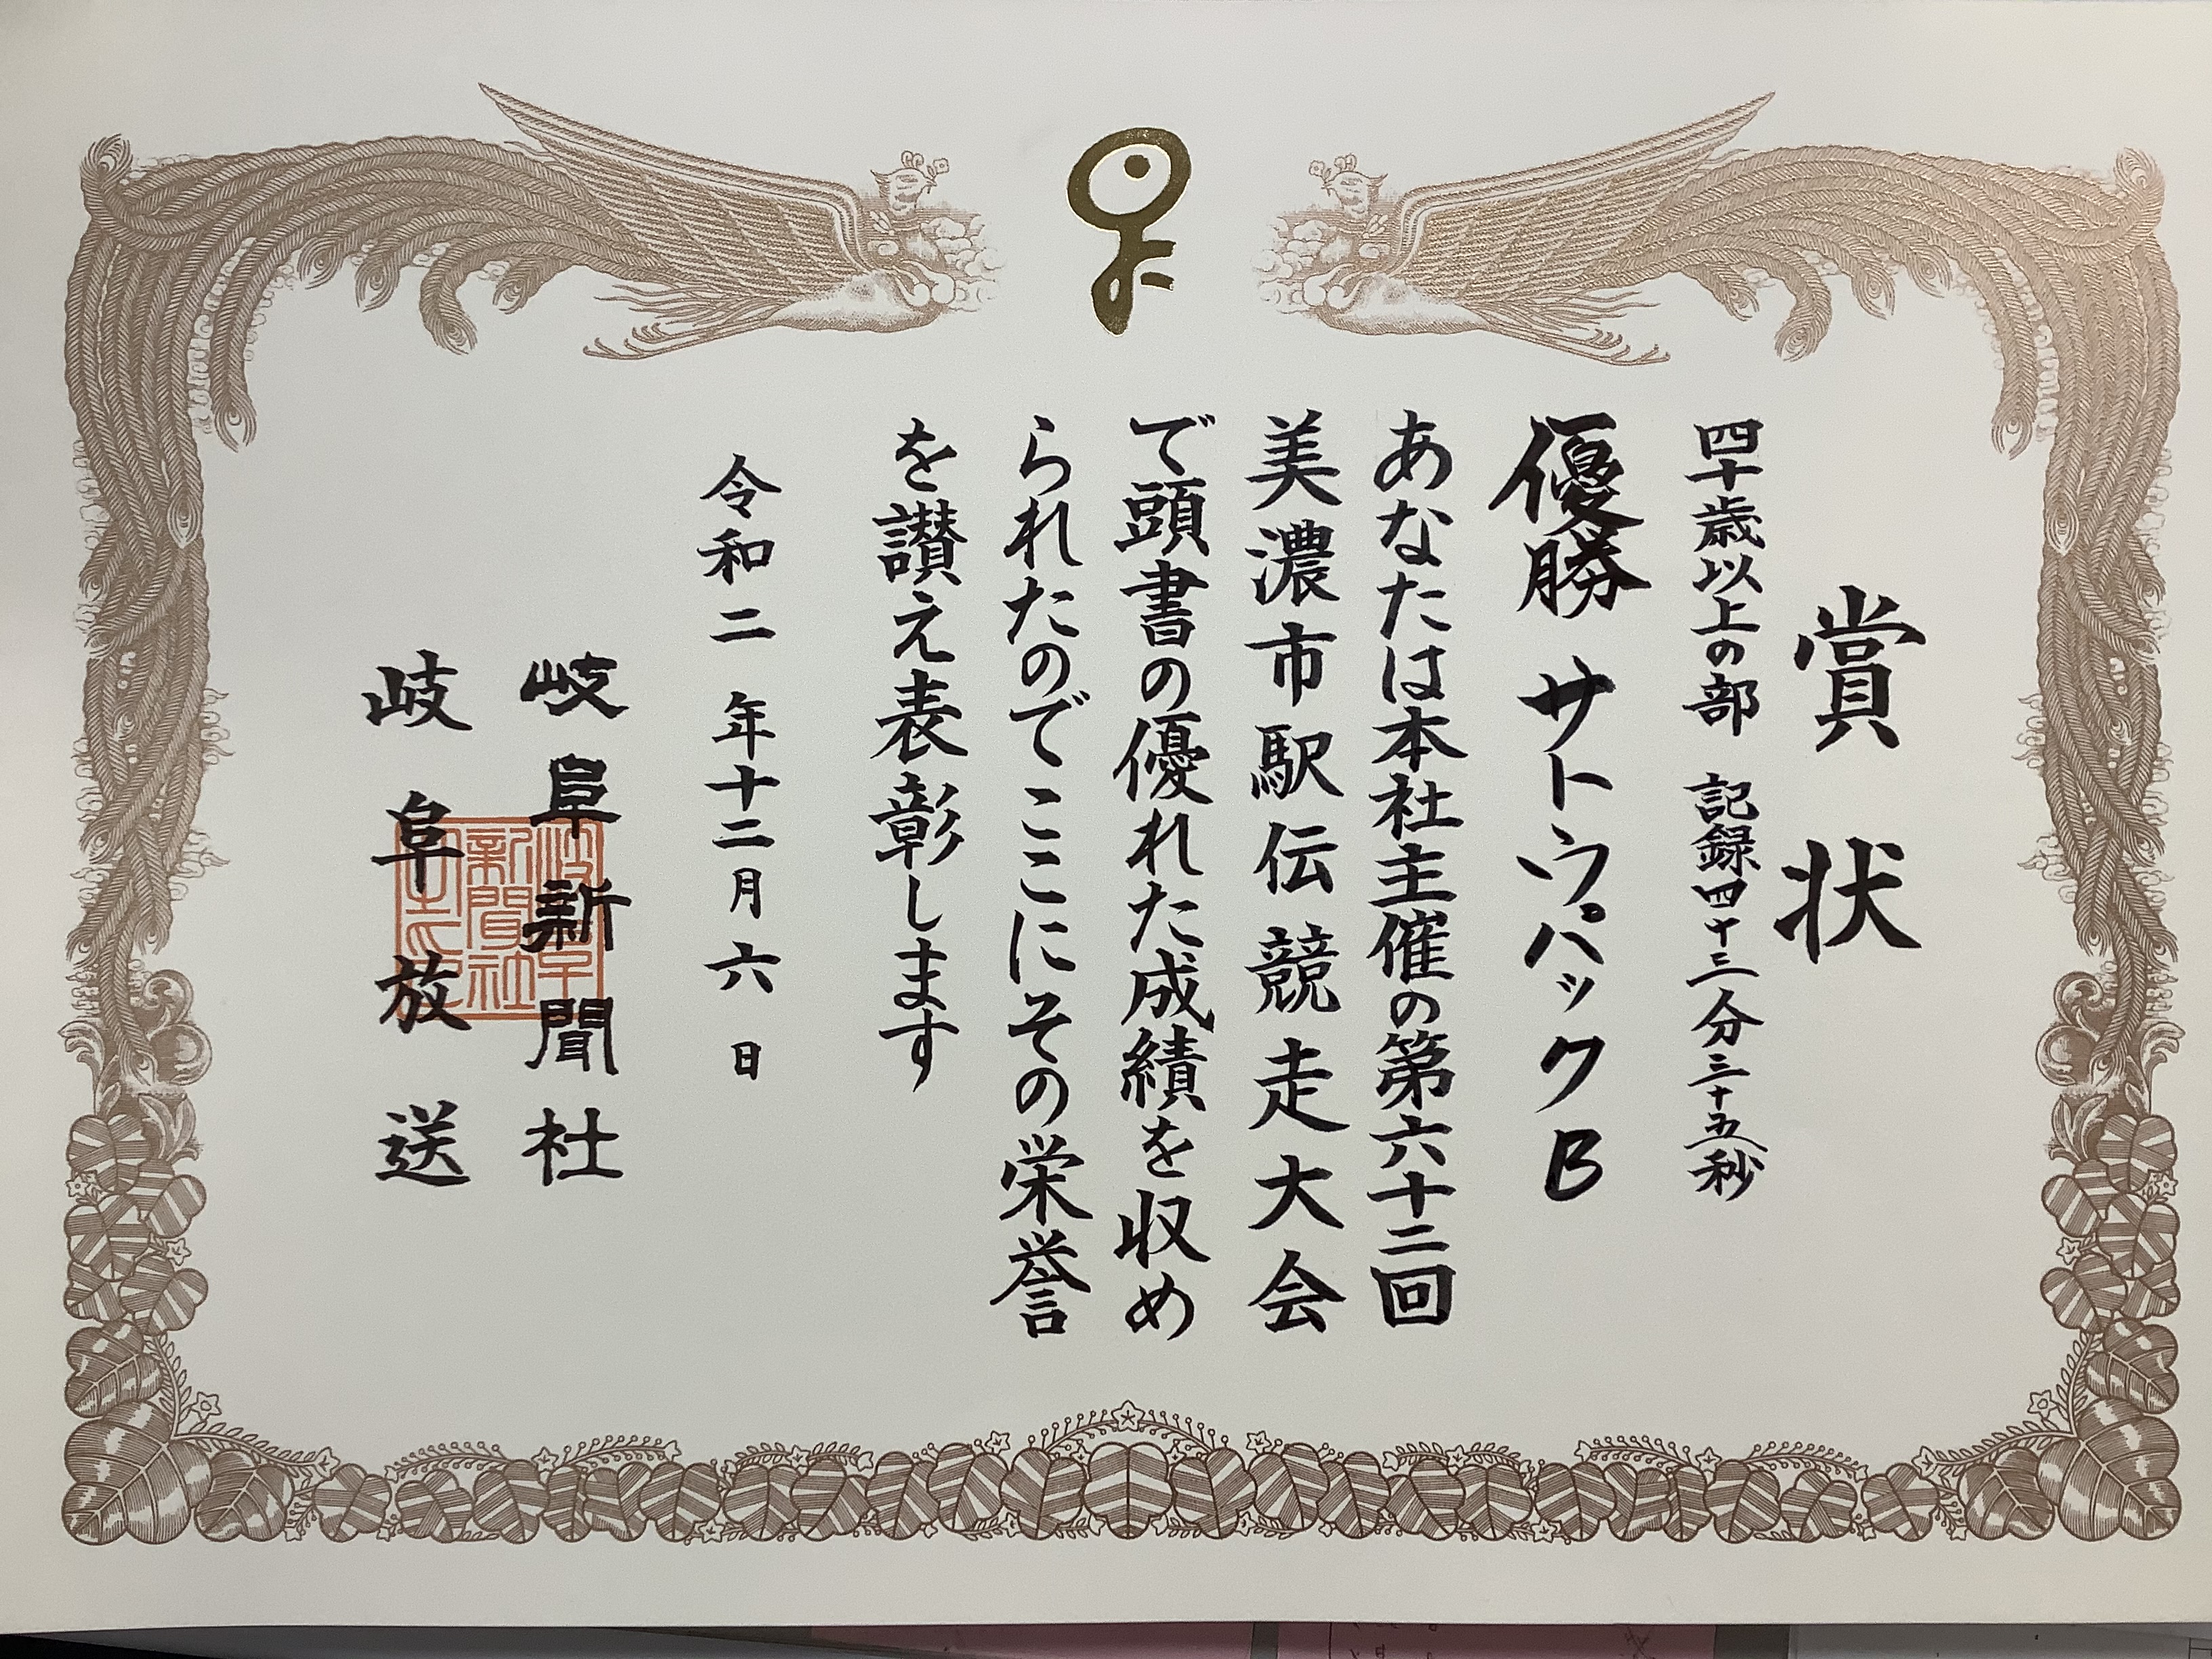 賞状
四十歳以上の部 記録四十三分三十五秒
優勝 サトウパックB
あなたは本社主催の第六十二回
美濃市駅伝競走大会
で頭書の優れた成績を収め
られたのでここにその栄誉
を讃え表彰します
令和二年十二月六日
岐阜新聞社
岐阜放送